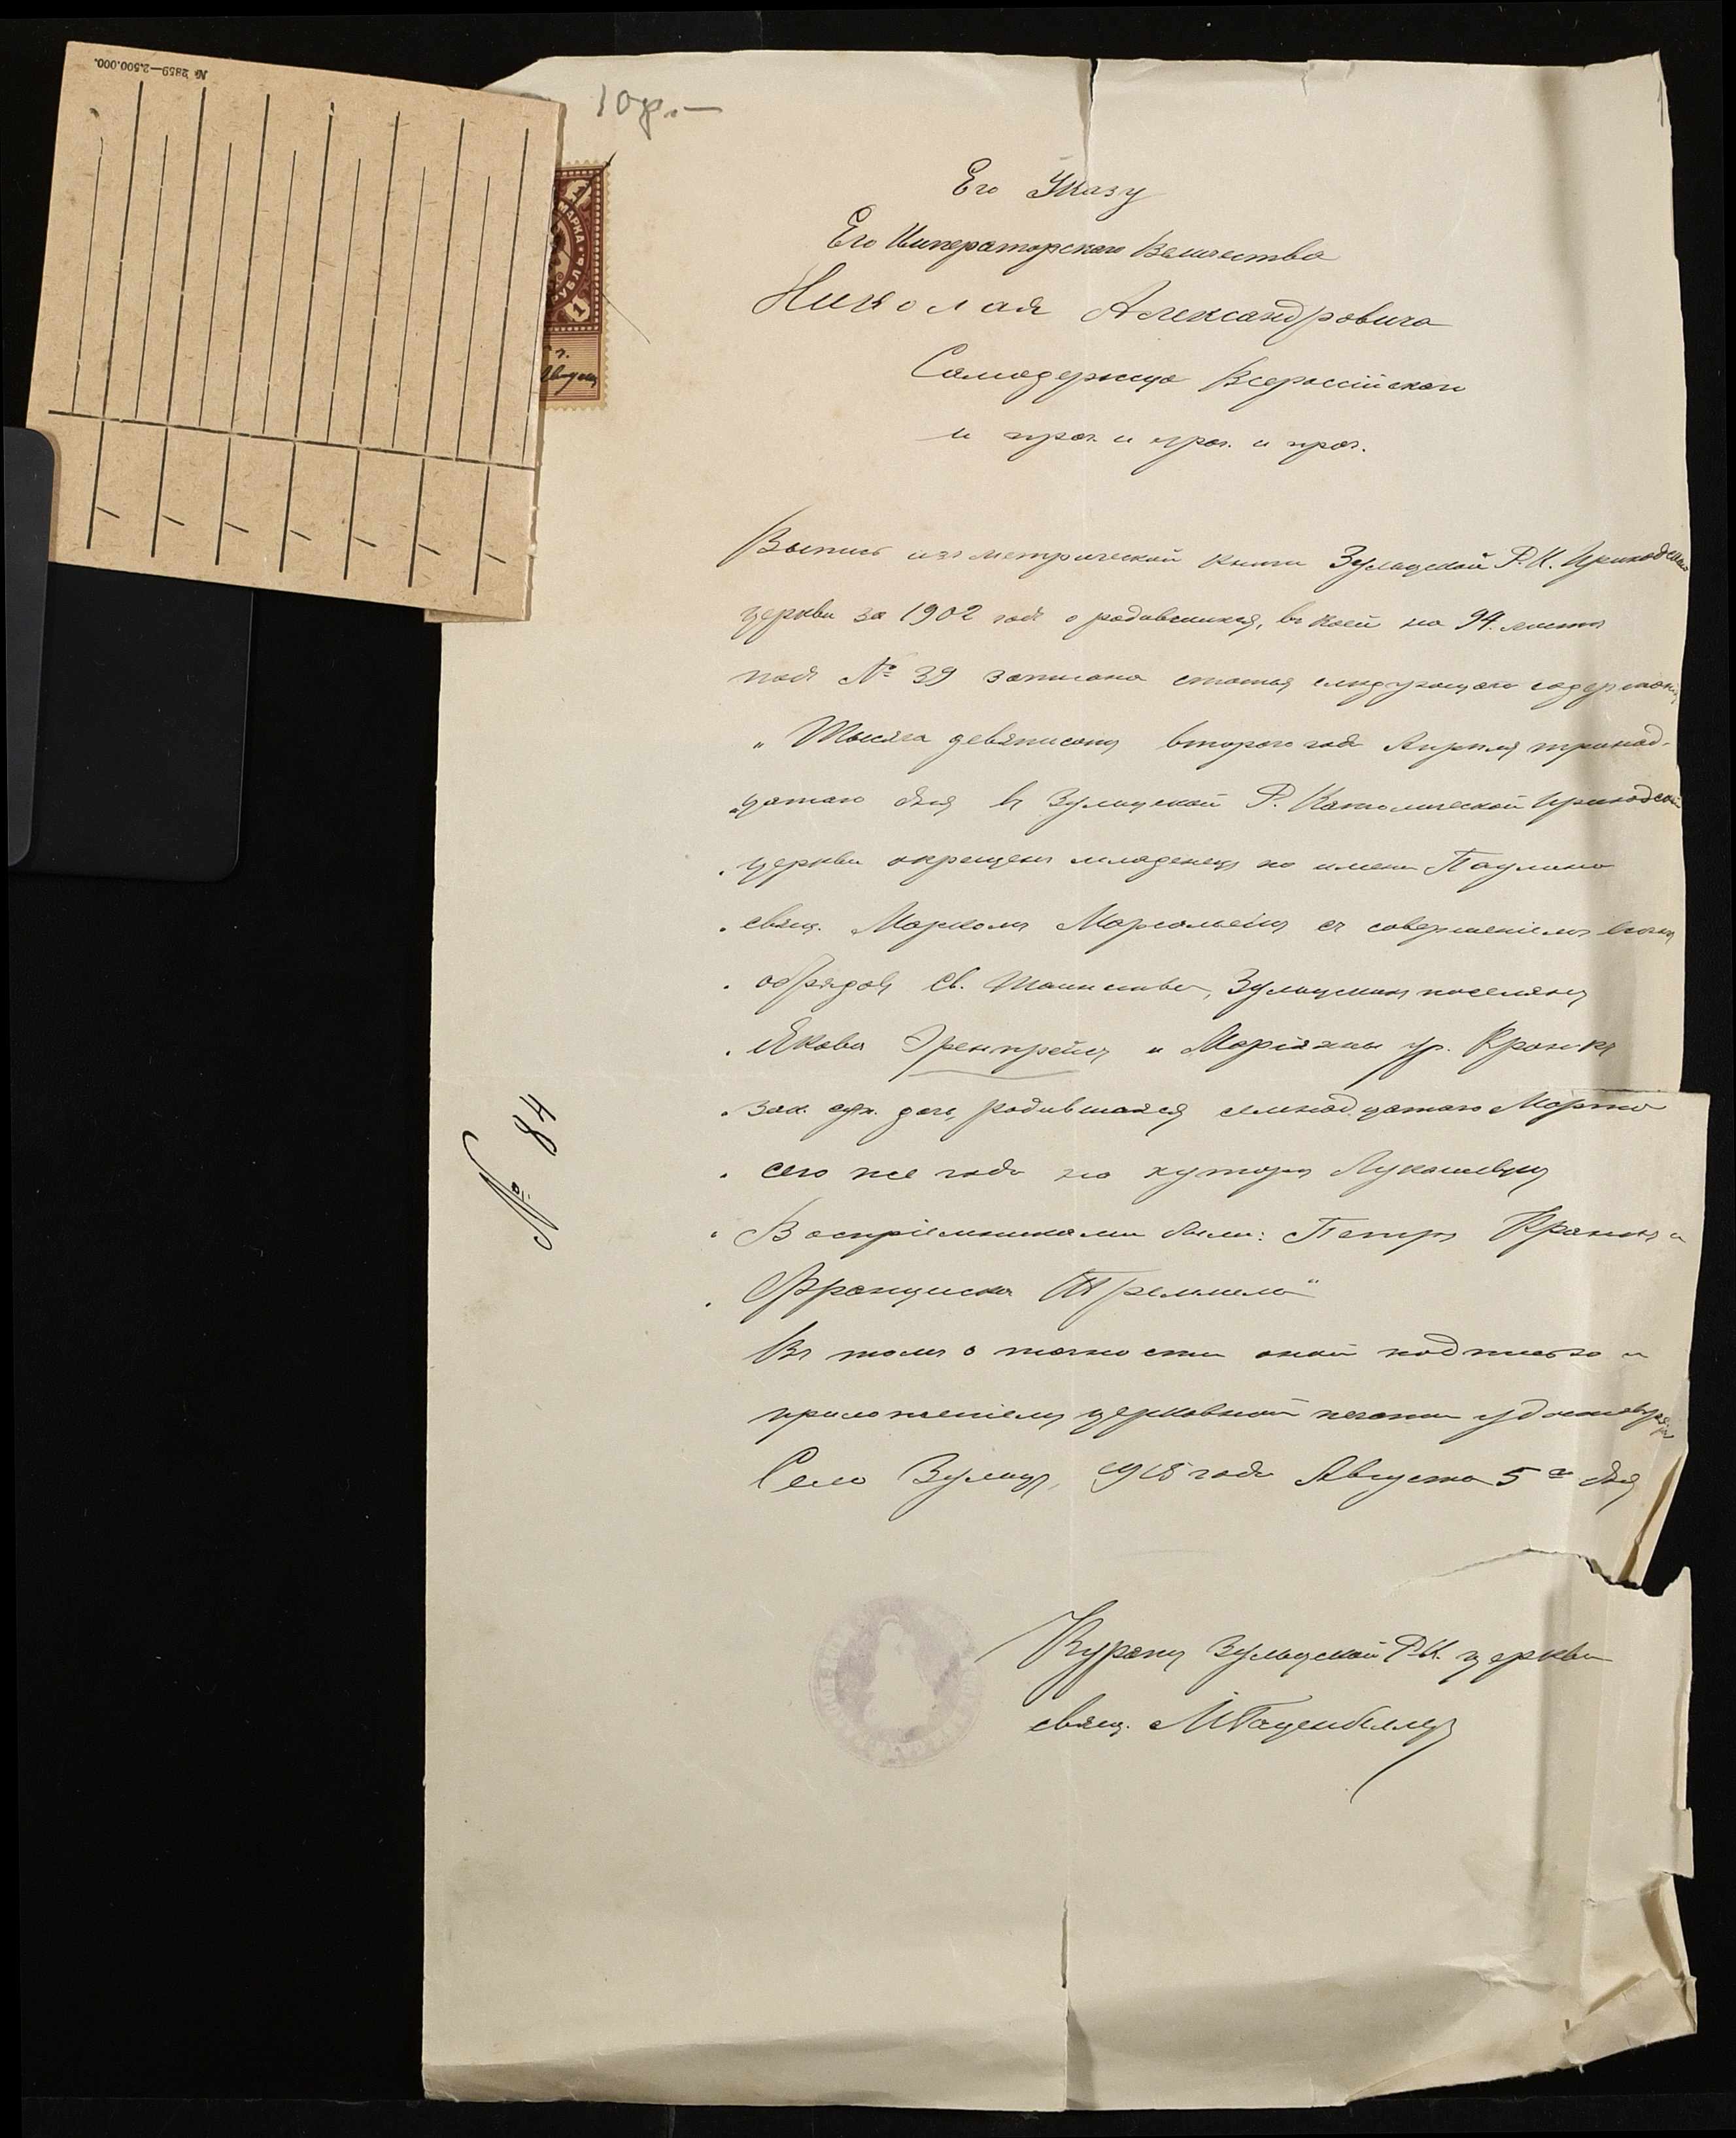 № 2859—2.500.000.
10р.—
1
МАРКА
РУБЛЬ
1
г.
Его Указу
Его Императорскаго Величества
Николая Александровича
Самодержца Всероссійскаго
и проч. и проч. и проч.
Выпись изъ метрической книги Зульцской Р. К. Приходской
церкви за 1902 годъ о родившихся, въ коей на 94. листѣ
подъ № 39 записана статья слѣдующаго содержанія
„ Тысяча девятисотъ второго года Апрѣля тринад-
„цатаго дня въ Зульцской Р. Католической Приходской
„ церкви окрещенъ младенецъ по имени Паулина
„ свящ. Маркомъ съ совершеніемъ всѣхъ
„ обрядовъ Св. Таинства, Зульцскихъ поселянъ
„ Якова Эренпрейсъ и Маріанны ур. Кронкъ
„ зак. суп. дочь, родившаяся семнадцатаго Марта
№ 84
„ сего же года на хуторѣ Лукашевкѣ
„ Воспріемниками были: Петръ и
„ Франциска Треммель“
Въ томъ о точности оной подписью и
приложеніемъ церковной печати удостовѣряю
Село Зульцъ, 1915 года Августа 5 го дня
Куратъ Зульцской Р.К. церкви
свящ.